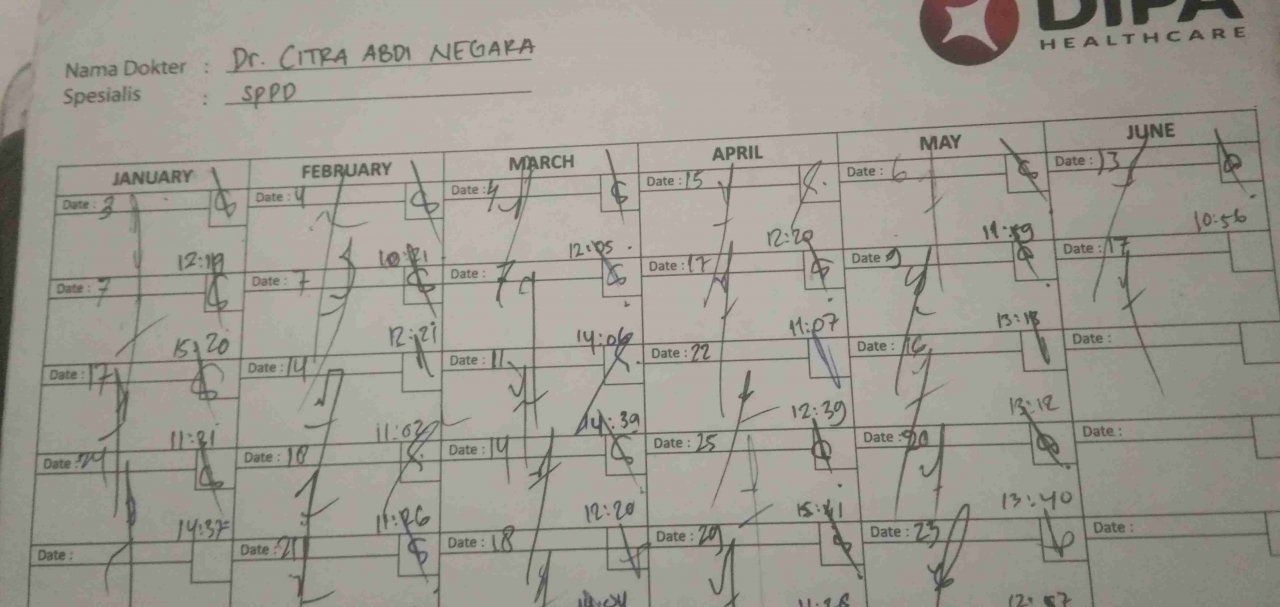 DIPA
HEALTHCARE
Nama Dokter : Dr. CITRA ABDI NEGARA
Spesialis : SPPD
JANUARY FEBRUARY MARCH APRIL MAY JUNE
Date : 3 Date : 4 Date : 4 Date : 15 Date : 6 Date : 13
12:19 10:21 12:05 12:20 11:59 10:56
Date : 7 Date : 7 Date : 7 Date : 17 Date : 9 Date : 17
15:20 12:21 14:06 11:07 13:18
Date : 17 Date : 14 Date : 11 Date : 22 Date : 16 Date :
11:21 11:02 14:39 12:39 13:12
Date : 24 Date : 18 Date : 14 Date : 25 Date : 20 Date :
14:37 11:26 12:20 15:41 13:40
Date : Date : 21 Date : 18 Date : 29 Date : 23 Date :